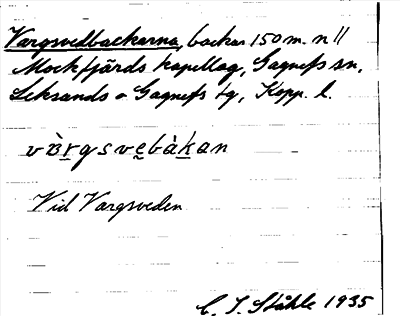 Vargsvedbackarna, backar 150 m. n ll
Mockfjärds kapellag, Gagnefs sn,
Leksands o Gagnefs tg, Kopp. l.
vàrgsvebàkan
Vid Vargsveden
C. I. Ståhle 1935